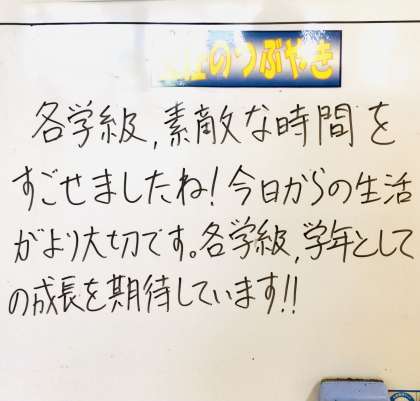 のつぶやき
各学級,素敵な時間を
すごせましたね!今日からの生活
がより大切です。各学級,学年として
の成長を期待しています!!